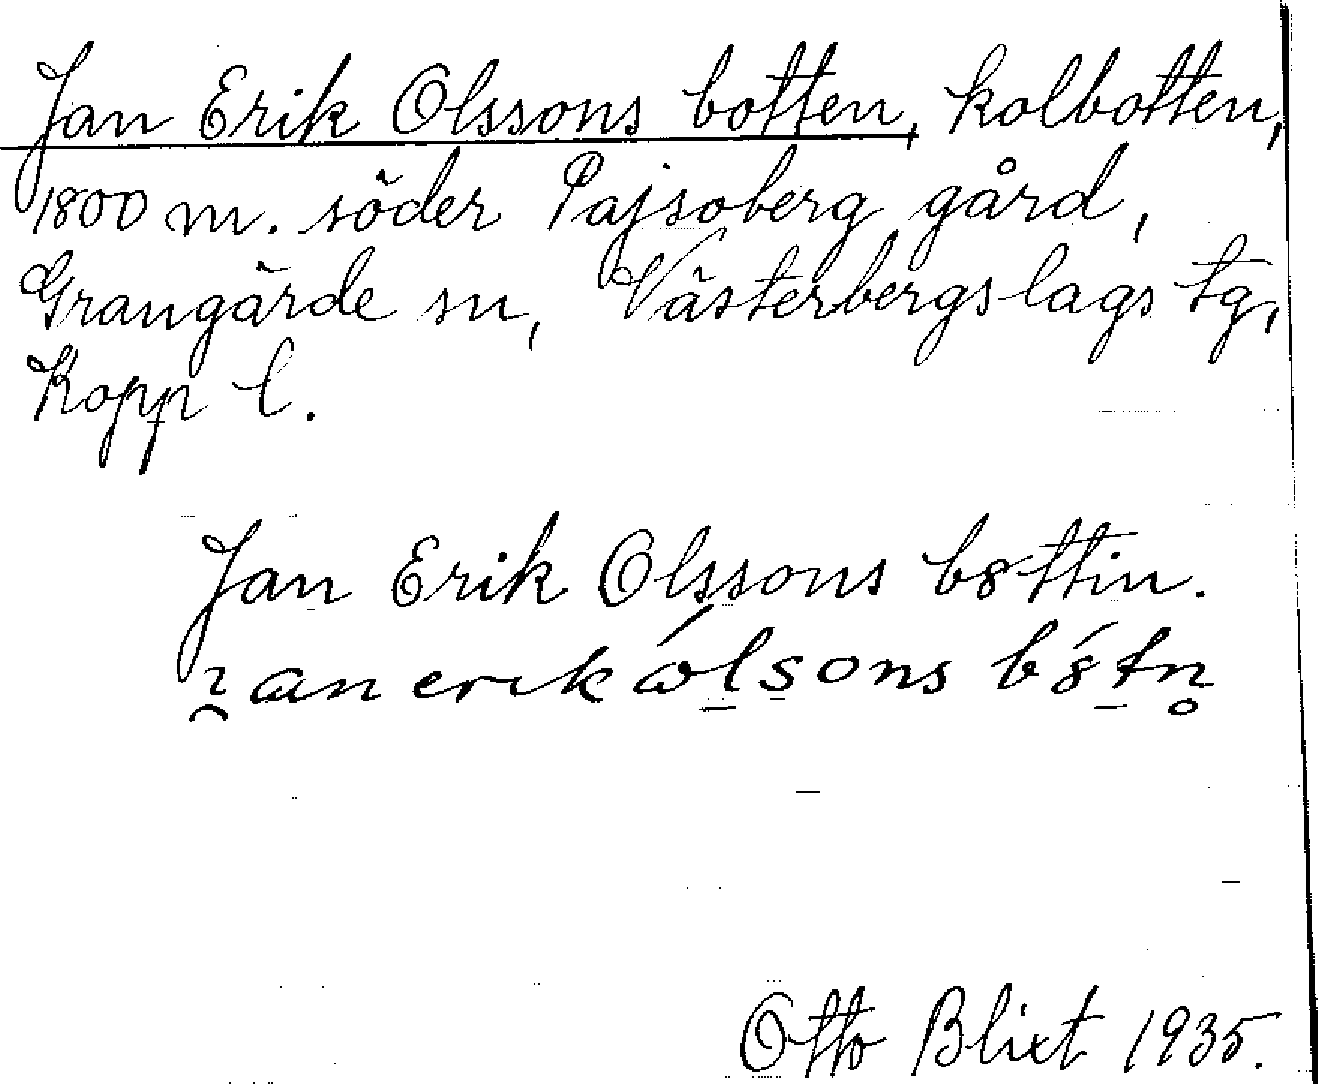 Jan Erik Olssons botten, kolbotten,
1800 m. söder Pajsoberg gård,
Grangärde sn, Västerbergslags tg,
Kopp l.
Jan Erik Olssons b8ttin.